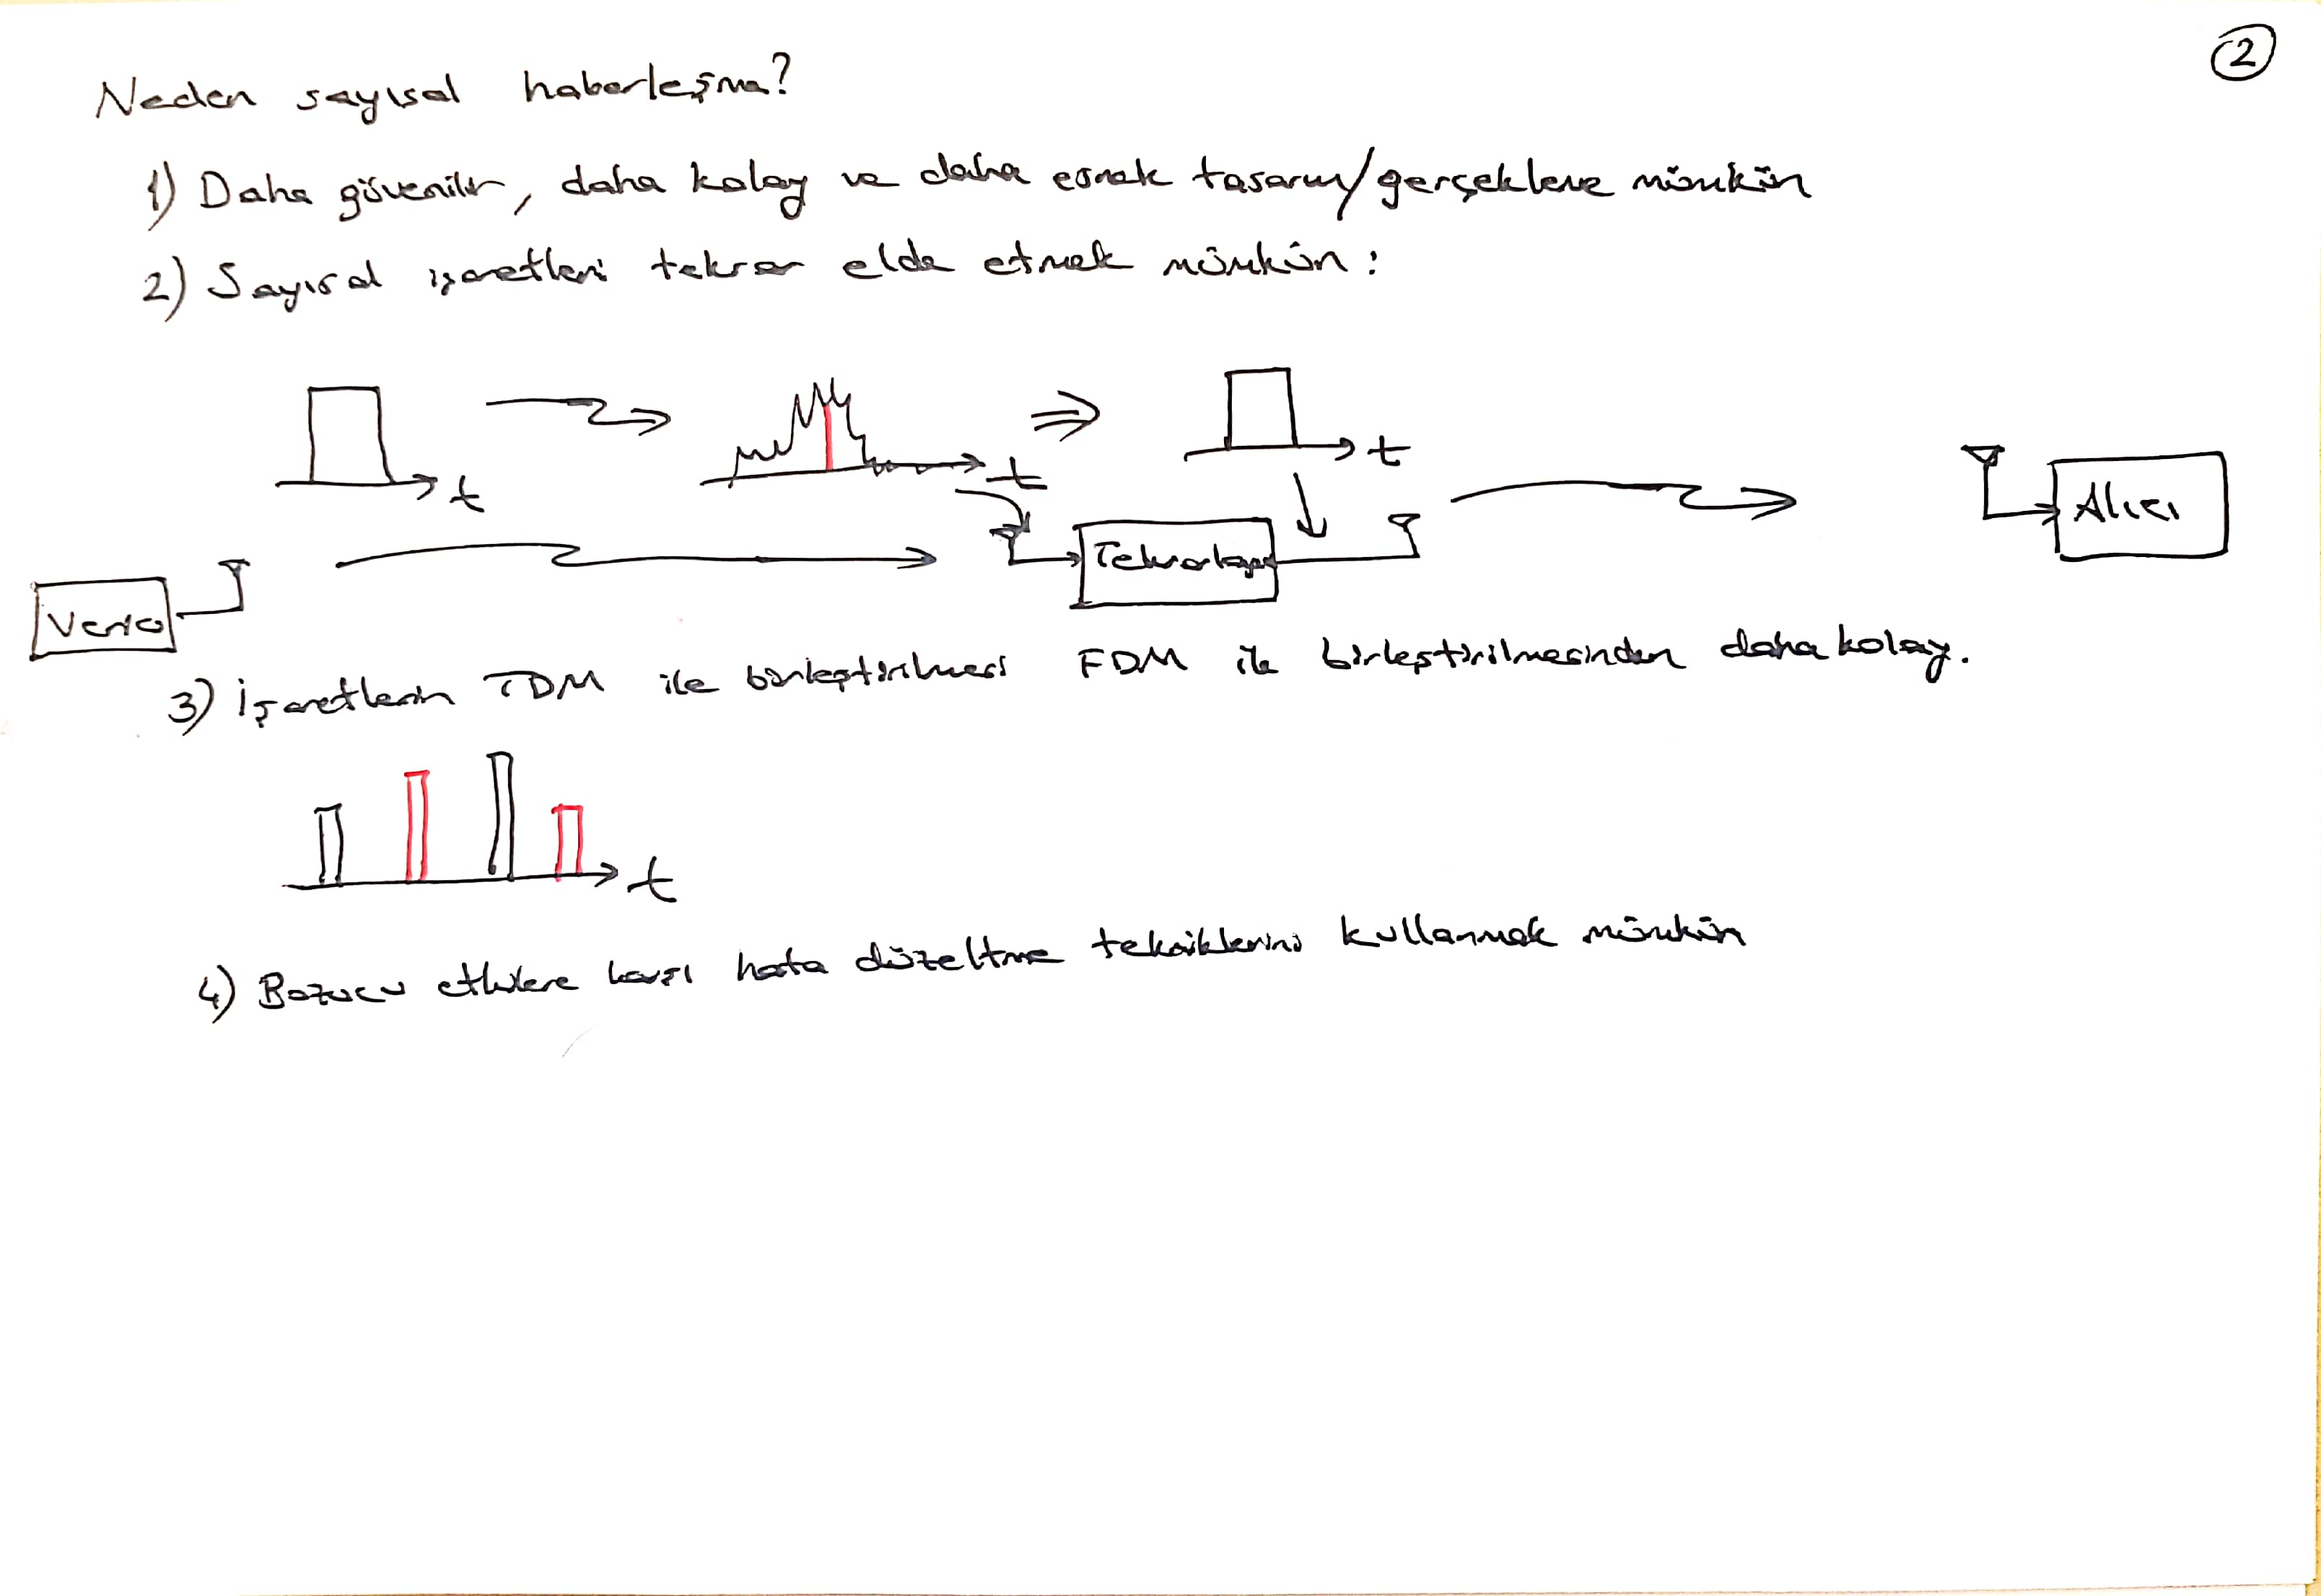 2
Neden sayısal haberleşme?
1) Daha güvenilir, daha kolay ve daha esnek tasarım/gerçekleme mümkün
2) Sayısal işaretleri tekrar elde etmek mümkün:
t
t
t
Verici
Tekrarlayıcı
Alıcı
3) İşaretlerin TDM ile birleştirilmesi FDM ile birleştirilmesinden daha kolay.
t
4) Bozucu etkilere karşı hata düzeltme tekniklerini kullanmak mümkün